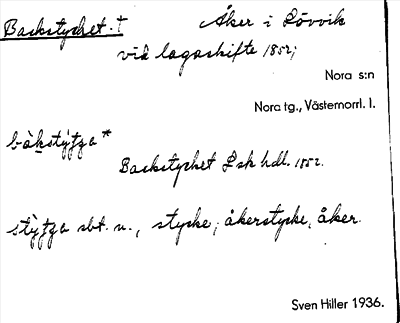 Backstycket. † Åker i Lövvik
vid lagaskifte 1852;
Nora s:n
Nora tg., Västernorrl. l.
bàkstỳʃʃa *
Backstycket Lsk hdl. 1852.
stỳʃʃa sbt. n., stycke; åkerstycke, åker.
Sven Hiller 1936.